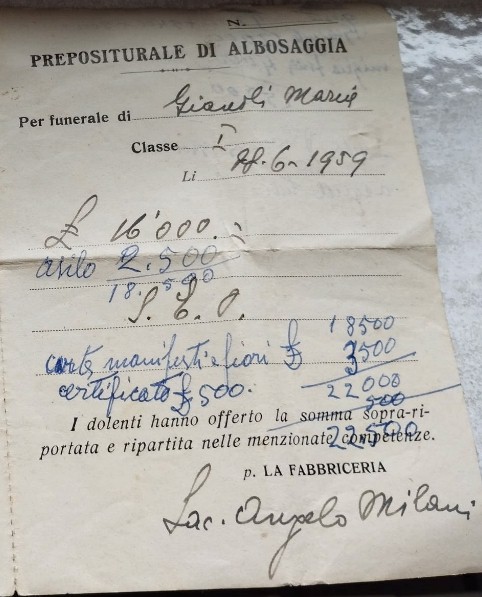 N.
PREPOSITURALE DI ALBOSAGGIA
Per funerale di Gianoli Maria
Classe I
Li 28-6-1959
£ 16'000.
asilo 2.500
18.500
S. E. O.
18500
carta manifesti e fiori £ 3500
22000
certificato £ 500.
500
I dolenti hanno offerto la somma sopra-ri-
portata e ripartita nelle menzionate competenze.
22500
p. LA FABBRICERIA
Sac. Angelo Milani